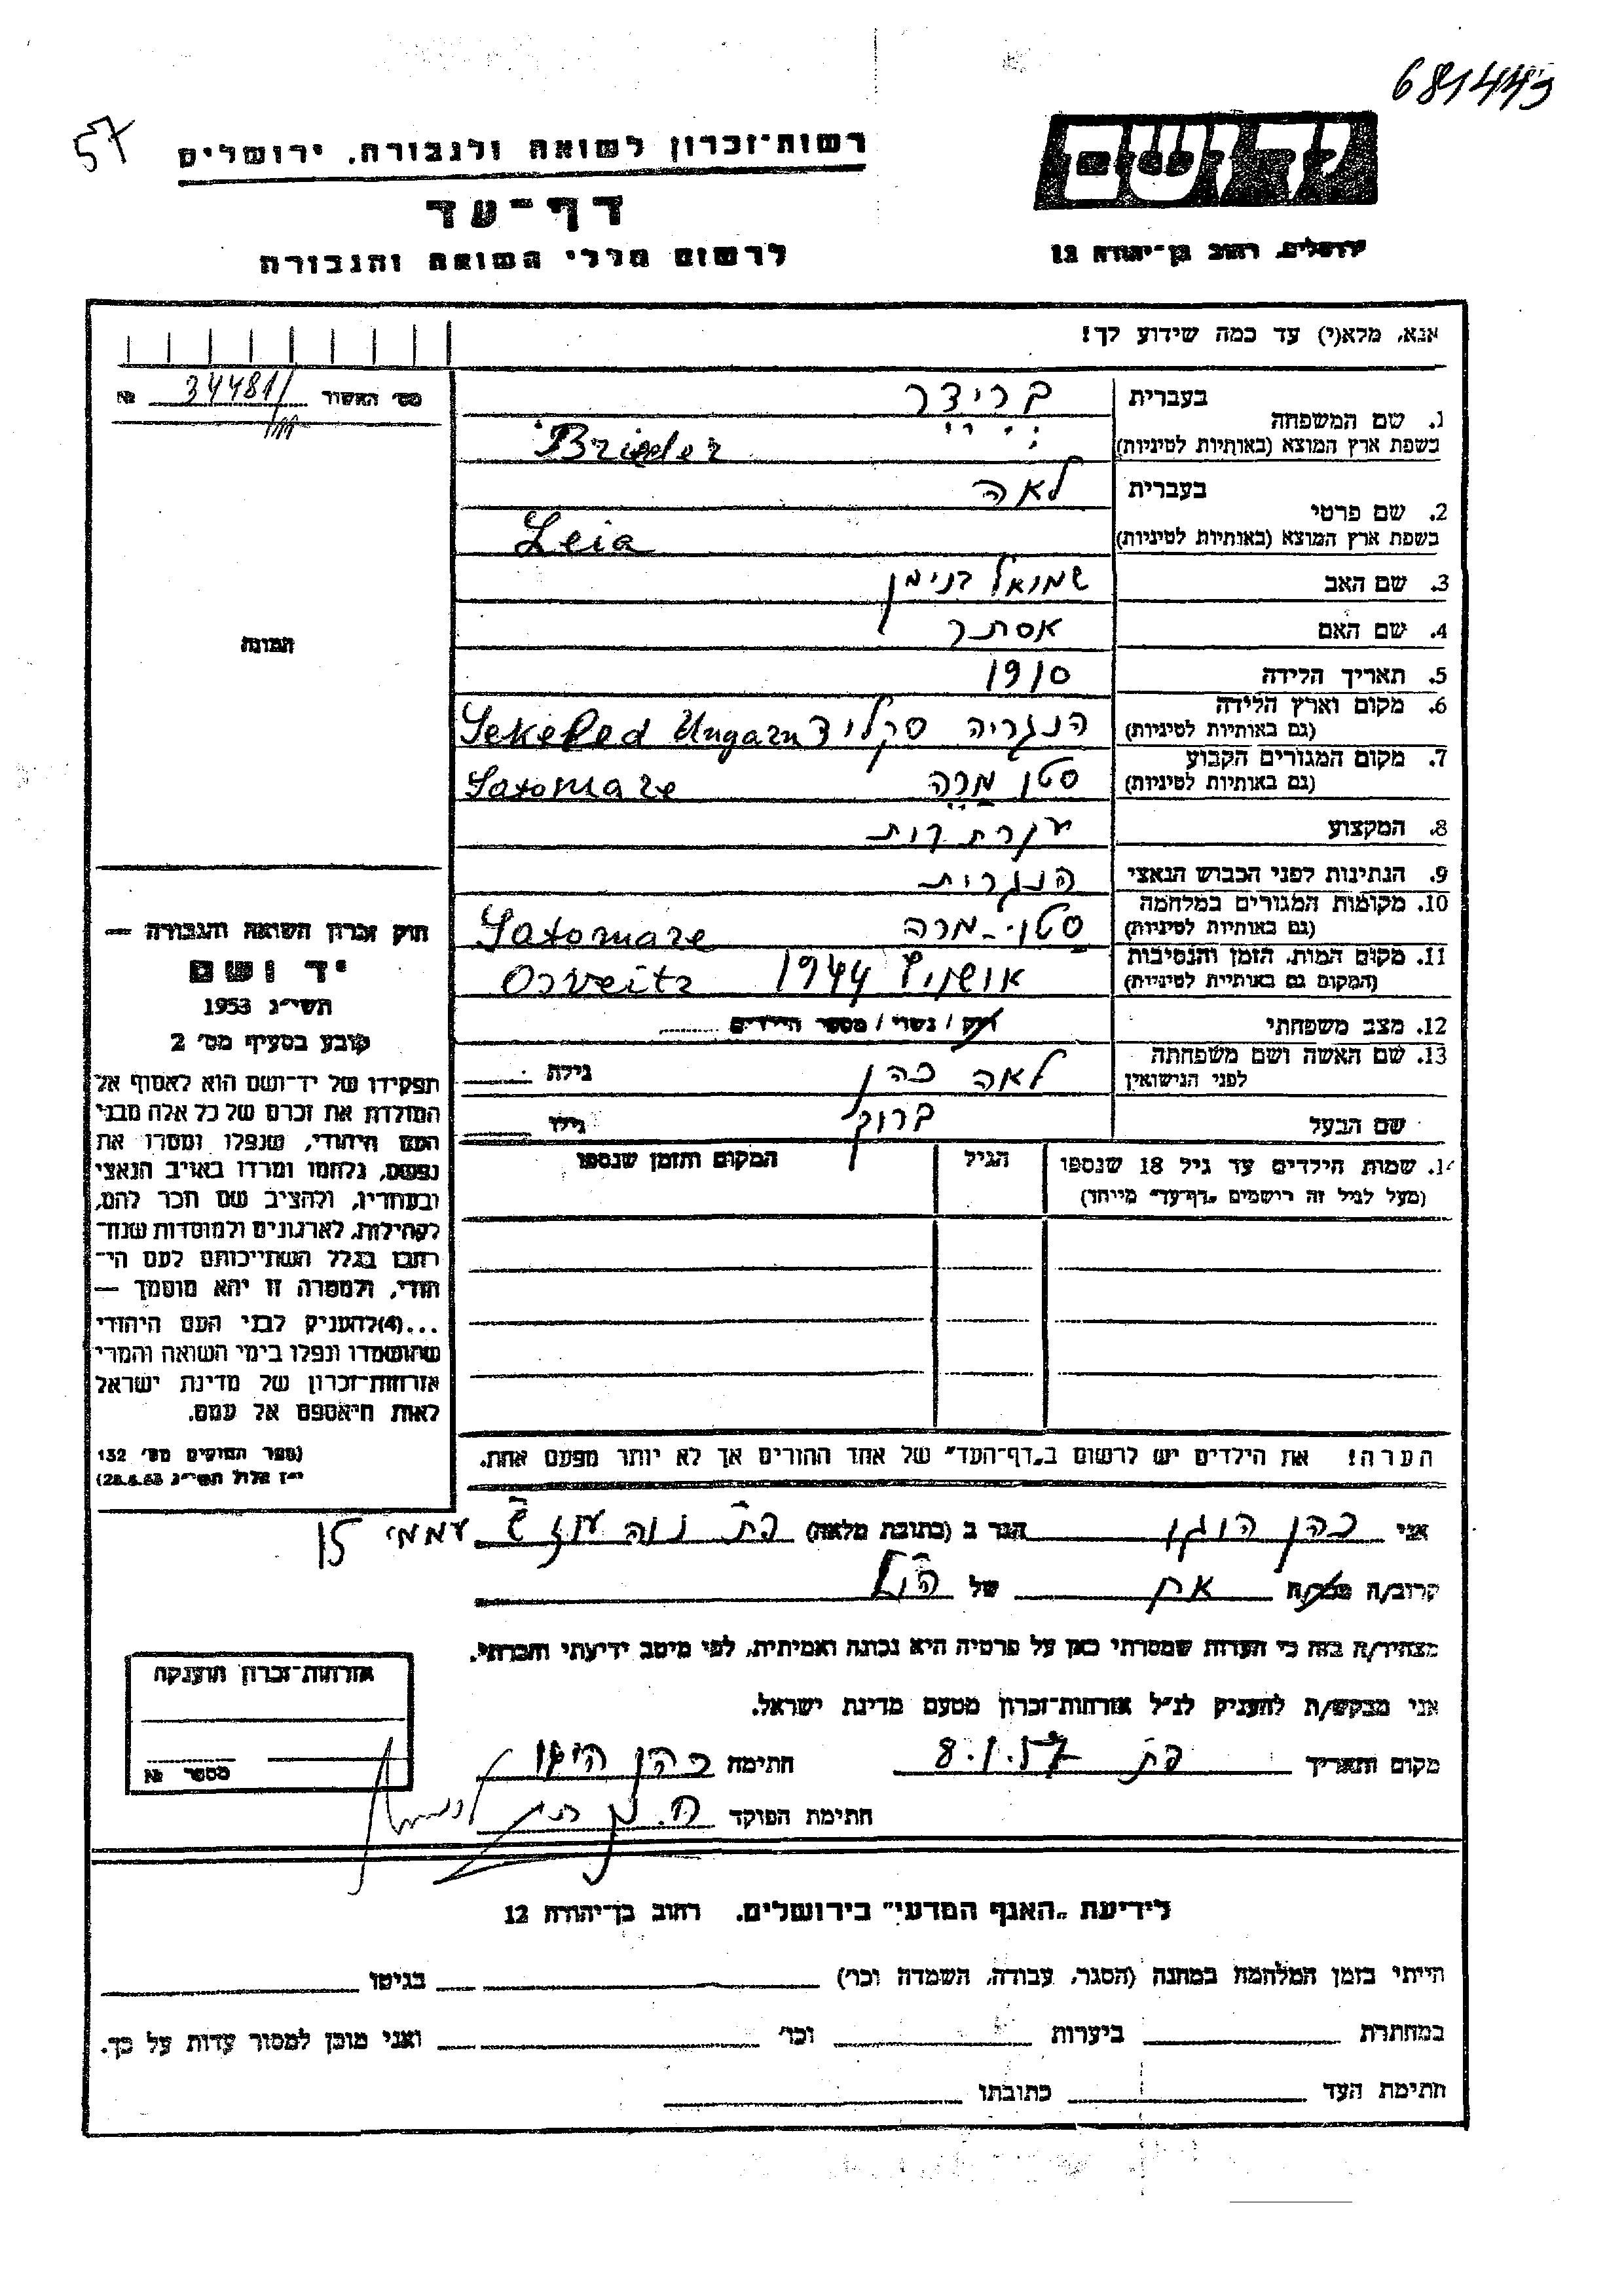 681443
57
יד ושם
רשות־זכרון לשואה ולגבורה, ירושלים
דף־עד
ירושלים, רחוב בן־יהודה 12
לרשום חללי השואה והגבורה
אנא, מלא(י) עד כמה שידוע לך!
מס׳ האשור 34481/ №
1. שם המשפחה
בעברית ברידר
בשפת ארץ המוצא (באותיות לטיניות) Brieder
2. שם פרטי
בעברית לאה
בשפת ארץ המוצא (באותיות לטיניות) Leia
3. שם האב שמואל בנימן
4. שם האם אסתר
התמונה
5. תאריך הלידה 1910
6. מקום וארץ הלידה (גם באותיות לטיניות) הנגריה סקליד Sekeled Ungarn
7. מקום המגורים הקבוע (גם באותיות לטיניות) סטו מרה Satomare
8. המקצוע עקרת בית
9. הנתינות לפני הכבוש הנאצי הנגרית
10. מקומות המגורים במלחמה (גם באותיות לטיניות) סטו-מרה Satomare
11. מקום המות, הזמן והנסיבות (המקום גם באותיות לטיניות) אושויץ 1944 Osveitz
12. מצב משפחתי רוק / נשוי / מספר הילדים
13. שם האשה ושם משפחתה לפני הנישואין לאה כהן גילה
שם הבעל ברוך גילו
14. שמות הילדים עד גיל 18 שנספו
(מעל לגיל זה רושמים „דף־עד״ מיוחד)
הגיל
המקום והזמן שנספו
חוק זכרון השואה והגבורה —
יד ושם
תשי״ג 1953
קובע בסעיף מס׳ 2
תפקידו של יד־ושם הוא לאסוף אל
המולדת את זכרם של כל אלה מבני
העם היהודי, שנפלו ומסרו את
נפשם, נלחמו ומרדו באויב הנאצי
ובעוזריו, ולהציב שם וזכר להם,
לקהילות, לארגונים ולמוסדות שנח־
רבו בגלל השתייכותם לעם הי־
הודי, ולמטרה זו יהא מוסמך —
...(4)להעניק לבני העם היהודי
שהושמדו ונפלו בימי השואה והמרי
אזרחות־זכרון של מדינת ישראל
לאות היאספם אל עמם.
(ספר החוקים מס׳ 132
י״ז אלול תשי״ג 28.8.53)
הערה! את הילדים יש לרשום ב„דף־העד״ של אחד ההורים אך לא יותר מפעם אחת.
אני כהן הוגו הגר ב (כתובת מלאה) פת נוה עוז עממי 15
קרוב/ה מכר/ה אח של הנ״ל
מצהיר/ה בזה כי העדות שמסרתי כאן על פרטיה היא נכונה ואמיתית, לפי מיטב ידיעתי והכרתי.
אני מבקש/ת להעניק לנ״ל אזרחות־זכרון מטעם מדינת ישראל.
אזרחות־זכרון הוענקה
מספר №
מקום ותאריך פת 8.1.57 חתימה כהן הוגו
חתימת הפוקד
לידיעת „האגף המדעי״ בירושלים, רחוב בן־יהודה 12
הייתי בזמן המלחמה במחנה (הסגר, עבודה, השמדה וכו׳) בגיטו
במחתרת ביערות וכו׳ ואני מוכן למסור עדות על כך.
חתימת העד כתובתו